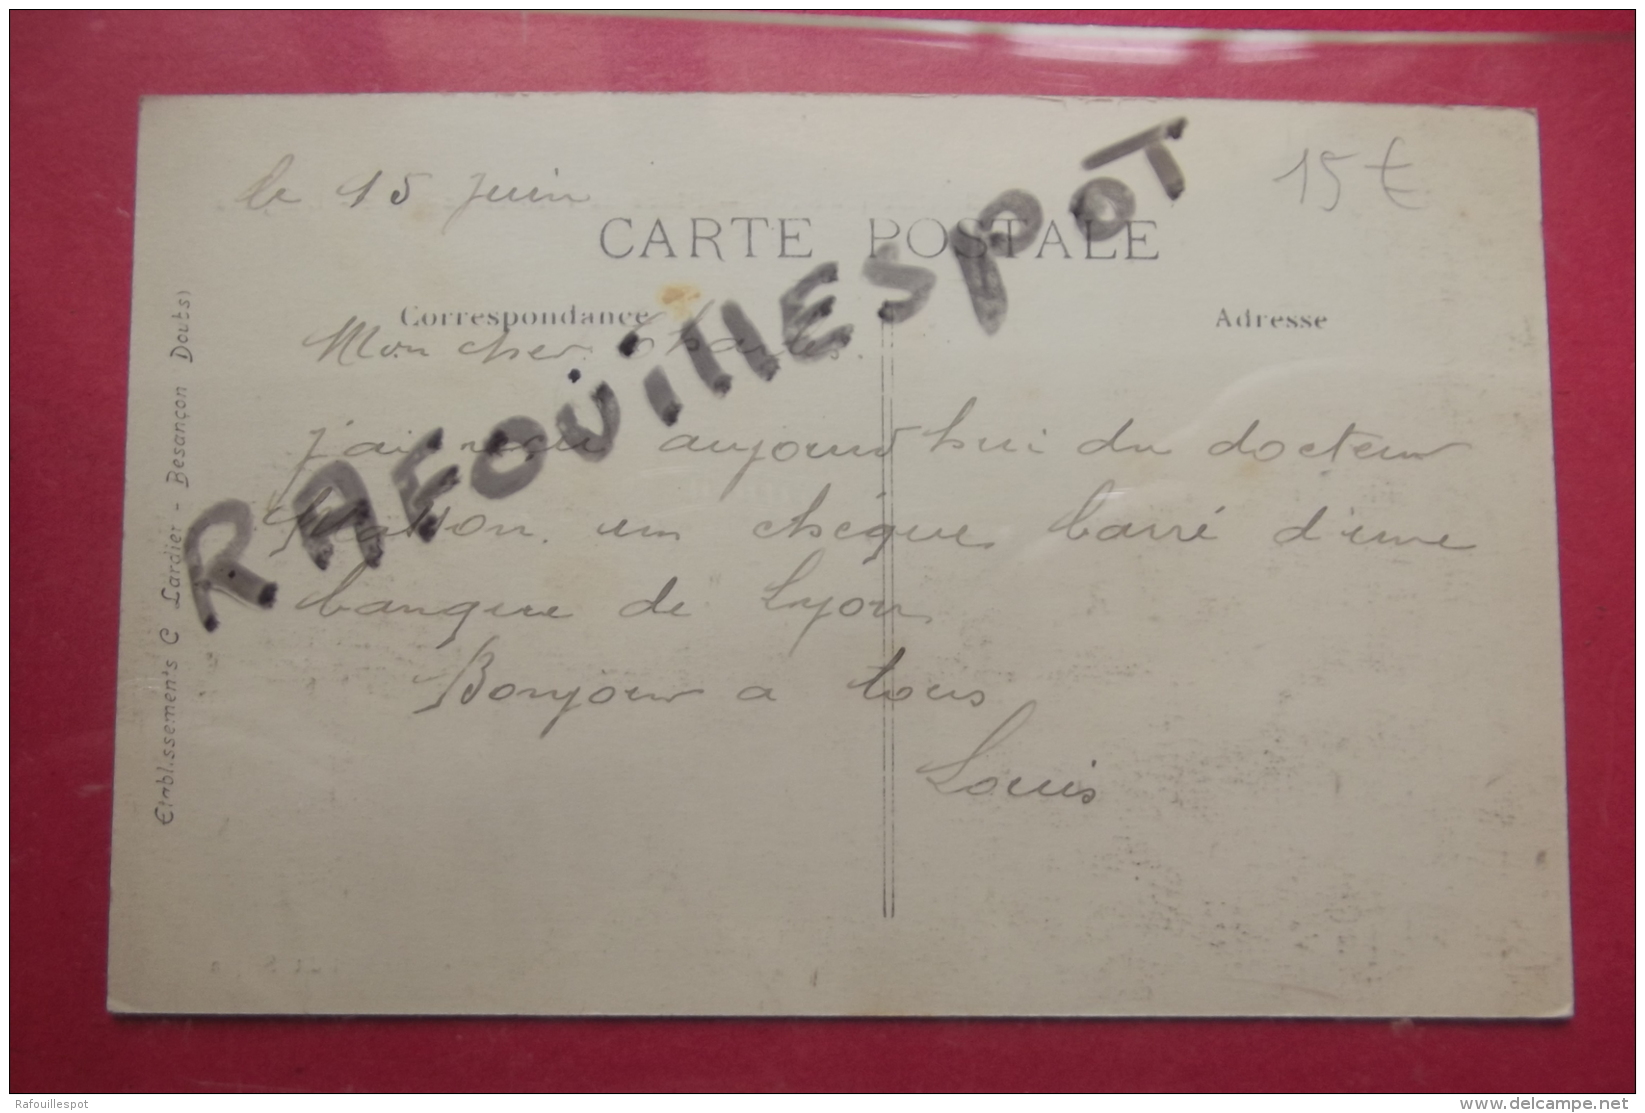 le 15 juin
15 €
CARTE POSTALE
Correspondance
Adresse
Mon cher Charles.
j'ai reçu aujourd'hui du docteur
un chèque barré d'une
banque de Lyon
Bonjour a tous
Louis
Etablissements C Lardier - Besançon Doubs)
RAFOUILLESPOT
Rafouillespot
delcampe.net